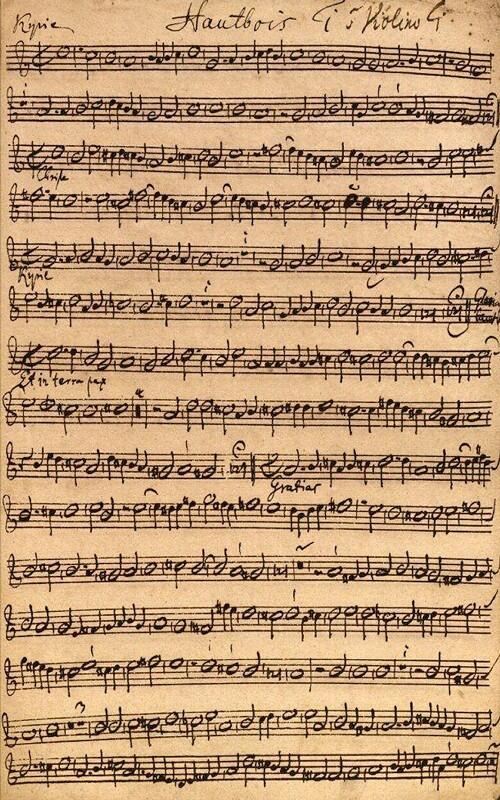 Kyrie Hautbois
Christe
Kyrie
Gloria
Et in terra pax
Gratias